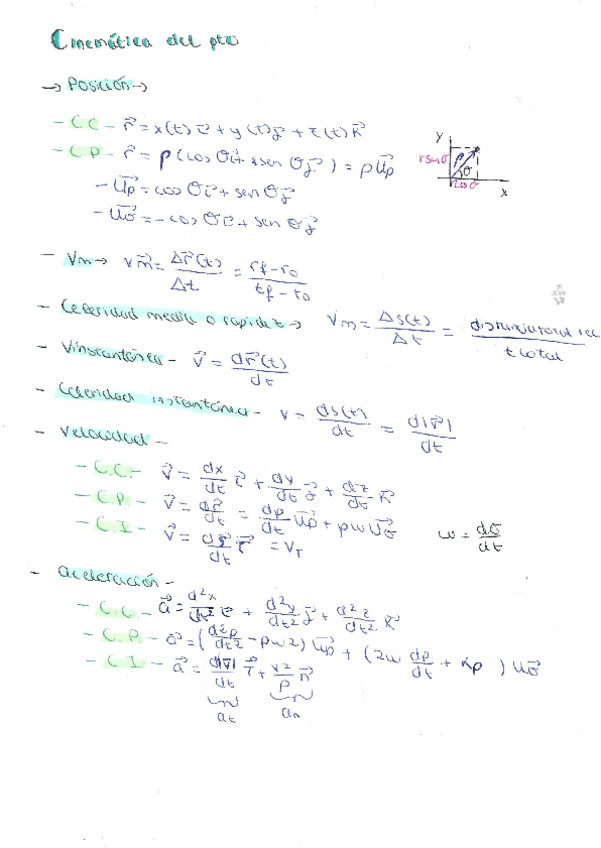 Cinemática del pto
→ Posición →
- CC - r⃗ = x(t) i⃗ + y(t) j⃗ + z(t) k⃗
- CP - r⃗ = ρ (cos θ i⃗ + sen θ j⃗) = ρ u⃗ρ
- u⃗ρ = cos θ i⃗ + sen θ j⃗
- u⃗θ = - cos θ i⃗ + sen θ j⃗
y
r sen θ
ρ
θ
x
- Vm → v⃗m = Δr⃗(t)/Δt = (rf - r0)/(tf - t0)
- Celeridad media o rapidez → Vm = Δs(t)/Δt = / t total
- Vinstantánea - v⃗ = dr⃗(t)/dt
- Celeridad instantánea - v = ds(t)/dt = d|r⃗|/dt
- Velocidad -
- C.C. - v⃗ = dx/dt i⃗ + dy/dt j⃗ + dz/dt k⃗
- C.P. - v⃗ = dr⃗/dt = dρ/dt u⃗ρ + ρω u⃗θ
ω = dθ/dt
- C.I - v⃗ = ds/dt τ⃗ = vτ
- aceleración -
- C.C. - a⃗ = d²x/dt² i⃗ + d²y/dt² j⃗ + d²z/dt² k⃗
- C.P. - a⃗ = (d²ρ/dt² - ρω2) u⃗ρ + (2ω dρ/dt + αρ) u⃗θ
- C.I - a⃗ = d|v⃗|/dt τ⃗ + v²/ρ n⃗
at an